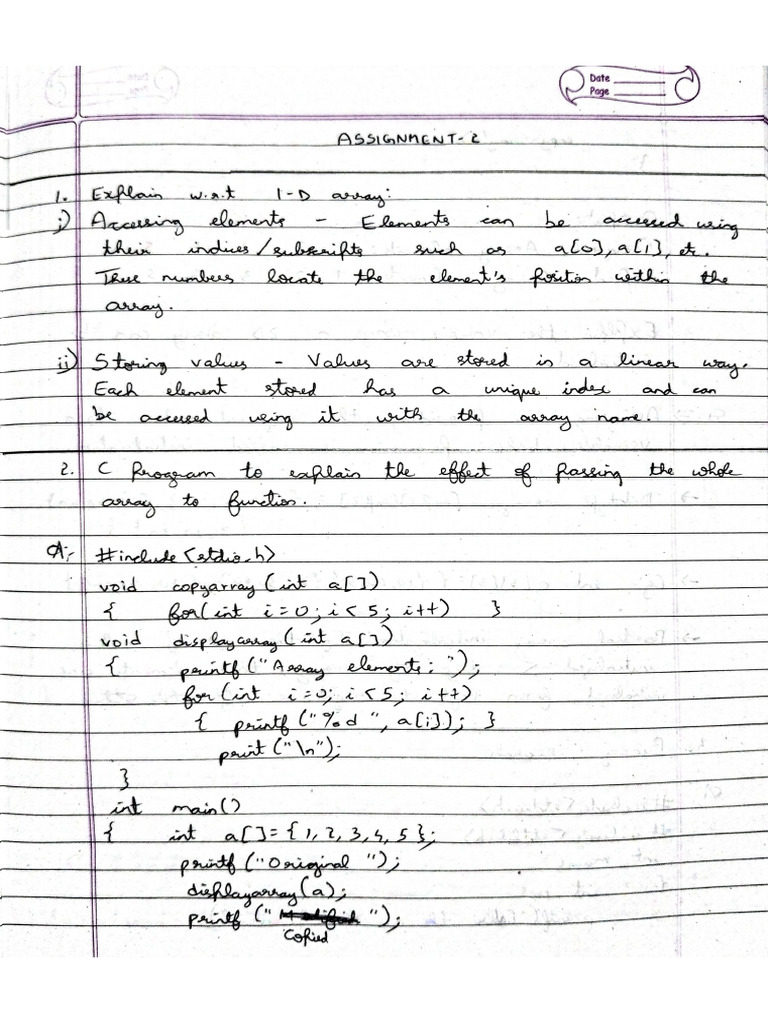 Date
Page
ASSIGNMENT-2
1. Explain w.r.t 1-D array:
i) Accessing elements - Elements can be accessed using
their indices/subscripts such as a[0], a[1], etc.
These numbers locate the element's position within the
array.
ii) Storing values - Values are stored in a linear way.
Each element stored has a unique index and can
be accessed using it with the array name.
2. C Program to explain the effect of passing the whole
array to function.
A:- #include<stdio.h>
void copyarray(int a[])
{ for(int i=0; i<5; i++) }
void displayarray(int a[])
{ printf("Array elements: ");
for(int i=0; i<5; i++)
{ printf("%d ", a[i]); }
print("\n");
}
int main()
{ int a[]={1,2,3,4,5};
printf("Original ");
displayarray(a);
printf(" ");
Copied